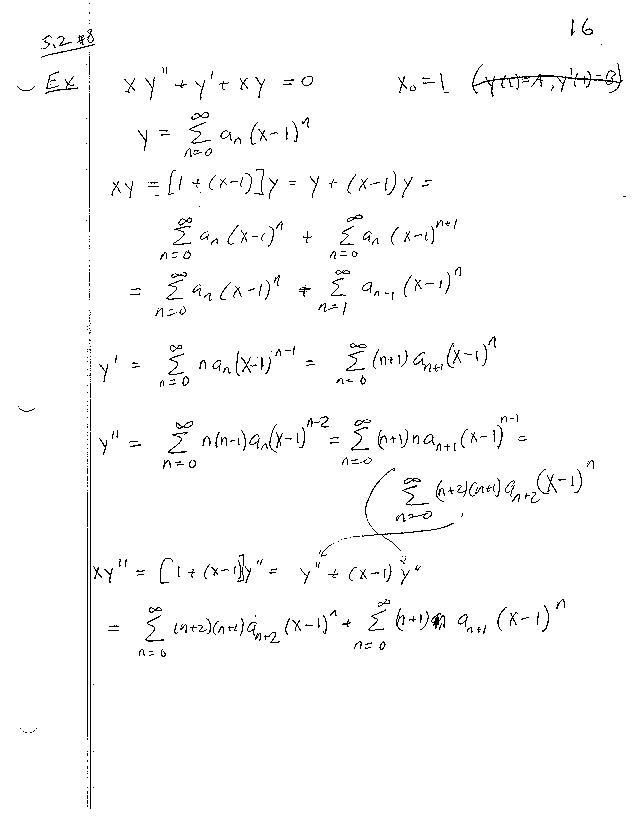 16
5.2 #8
Ex xy'' + y' + xy = 0 x₀ = 1 (y(1)=A, y'(1)=B)
y = ∑_{n=0}^{∞} aₙ (x-1)ⁿ
xy = [1 + (x-1)]y = y + (x-1)y =
∑_{n=0}^{∞} aₙ (x-1)ⁿ + ∑_{n=0}^{∞} aₙ (x-1)ⁿ⁺¹
= ∑_{n=0}^{∞} aₙ (x-1)ⁿ + ∑_{n=1}^{∞} aₙ₋₁ (x-1)ⁿ
y' = ∑_{n=0}^{∞} n aₙ (x-1)ⁿ⁻¹ = ∑_{n=0}^{∞} (n+1) aₙ₊₁ (x-1)ⁿ
y'' = ∑_{n=0}^{∞} n(n-1) aₙ (x-1)ⁿ⁻² = ∑_{n=0}^{∞} (n+1) n aₙ₊₁ (x-1)ⁿ⁻¹ =
∑_{n=0}^{∞} (n+2)(n+1) aₙ₊₂ (x-1)ⁿ
xy'' = [1 + (x-1)]y'' = y'' + (x-1) y''
= ∑_{n=0}^{∞} (n+2)(n+1) aₙ₊₂ (x-1)ⁿ + ∑_{n=0}^{∞} (n+1) n aₙ₊₁ (x-1)ⁿ